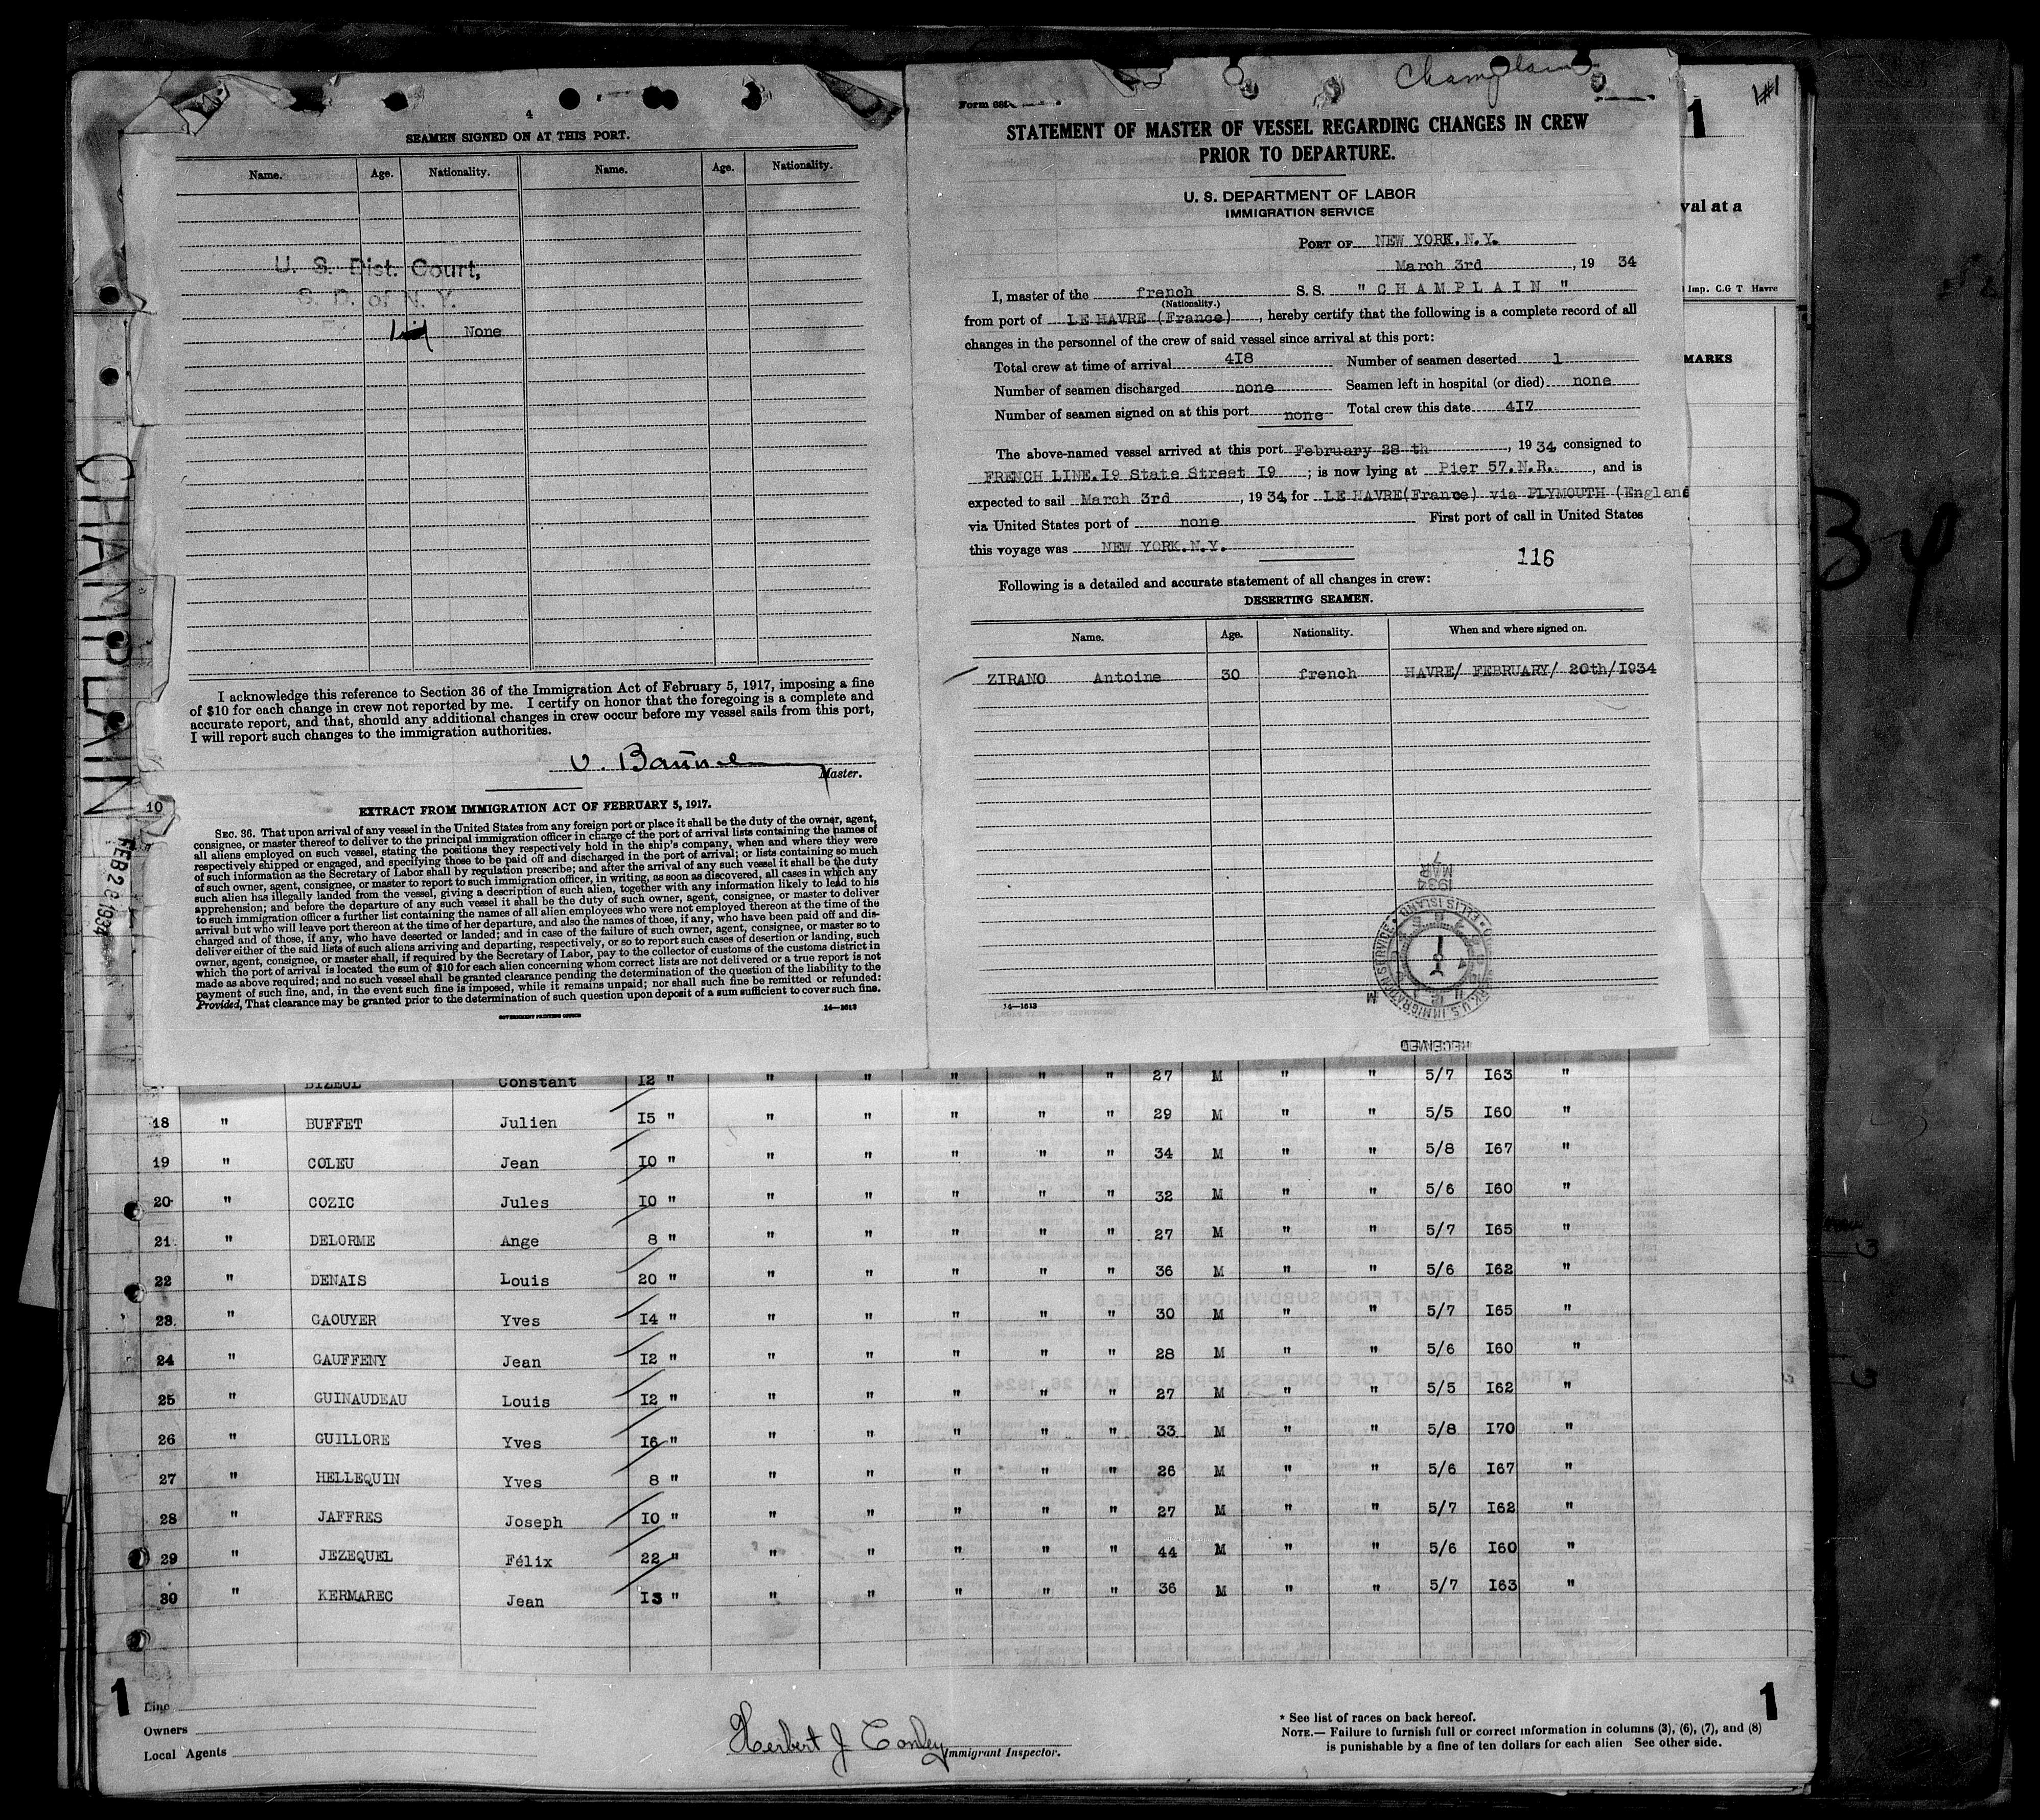 4
SEAMEN SIGNED ON AT THIS PORT.
Name. Age. Nationality. Name. Age. Nationality.
U. S. Dist. Court,
S. D. of N. Y.
None
I acknowledge this reference to Section 36 of the Immigration Act of February 5, 1917, imposing a fine
of $10 for each change in crew not reported by me. I certify on honor that the foregoing is a complete and
accurate report, and that, should any additional changes in crew occur before my vessel sails from this port,
I will report such changes to the immigration authorities.
Master.
EXTRACT FROM IMMIGRATION ACT OF FEBRUARY 5, 1917.
SEC. 36. That upon arrival of any vessel in the United States from any foreign port or place it shall be the duty of the owner, agent,
consignee, or master thereof to deliver to the principal immigration officer in charge of the port of arrival lists containing the names of
all aliens employed on such vessel, stating the positions they respectively hold in the ship's company, when and where they were
respectively shipped or engaged, and specifying those to be paid off and discharged in the port of arrival; or lists containing so much
of such information as the Secretary of Labor shall by regulation prescribe; and after the arrival of any such vessel it shall be the duty
of such owner, agent, consignee, or master to report to such immigration officer, in writing, as soon as discovered, all cases in which any
such alien has illegally landed from the vessel, giving a description of such alien, together with any information likely to lead to his
apprehension; and before the departure of any such vessel it shall be the duty of such owner, agent, consignee, or master to deliver
to such immigration officer a further list containing the names of all alien employees who were not employed thereon at the time of the
arrival but who will leave port thereon at the time of her departure, and also the names of those, if any, who have been paid off and dis-
charged and of those, if any, who have deserted or landed; and in case of the failure of such owner, agent, consignee, or master so to
deliver either of the said lists of such aliens arriving and departing, respectively, or so to report such cases of desertion or landing, such
owner, agent, consignee, or master shall, if required by the Secretary of Labor, pay to the collector of customs of the customs district in
which the port of arrival is located the sum of $10 for each alien concerning whom correct lists are not delivered or a true report is not
made as above required; and no such vessel shall be granted clearance pending the determination of the question of the liability to the
payment of such fine, and, in the event such fine is imposed, while it remains unpaid; nor shall such fine be remitted or refunded:
Provided, That clearance may be granted prior to the determination of such question upon deposit of a sum sufficient to cover such fine.
GOVERNMENT PRINTING OFFICE 14—1613
CHAMPLAIN
FEB 28 1934
10
Champlain
Form 680
STATEMENT OF MASTER OF VESSEL REGARDING CHANGES IN CREW
PRIOR TO DEPARTURE.
U. S. DEPARTMENT OF LABOR
IMMIGRATION SERVICE
PORT OF NEW YORK.N.Y.
March 3rd, 19 34
I, master of the french S.S. "CHAMPLAIN"
(Nationality.)
from port of LE HAVRE (France), hereby certify that the following is a complete record of all
changes in the personnel of the crew of said vessel since arrival at this port:
Total crew at time of arrival 4I8 Number of seamen deserted 1
Number of seamen discharged none Seamen left in hospital (or died) none
Number of seamen signed on at this port none Total crew this date 4I7
The above-named vessel arrived at this port February 28 th, 19 34, consigned to
FRENCH LINE.I9 State Street I9; is now lying at Pier 57.N.R., and is
expected to sail March 3rd, 19 34, for LE HAVRE(France) via PLYMOUTH (England
via United States port of none First port of call in United States
this voyage was NEW YORK.N.Y.
116
Following is a detailed and accurate statement of all changes in crew:
DESERTING SEAMEN.
Name. Age. Nationality. When and where signed on.
ZIRANO Antoine 30 french HAVRE/ FEBRUARY/ 20th/I934
MAR
1934
U.S. IMMIGRATION SERVICE ELLIS ISLAND
RECEIVED
14—1613
1
1
val at a
Imp. C.G T Havre
MARKS
34
BIZEUL Constant I2 " " " " " " 27 M " " 5/7 I63 "
18 " BUFFET Julien I5 " " " " " " 29 M " " 5/5 I60 "
19 " COLEU Jean IO " " " " " " 34 M " " 5/8 I67 "
20 " COZIC Jules IO " " " " " " 32 M " " 5/6 I60 "
21 " DELORME Ange 8 " " " " " " 27 M " " 5/7 I65 "
22 " DENAIS Louis 20 " " " " " " 36 M " " 5/6 I62 "
23 " GAOUYER Yves I4 " " " " " " 30 M " " 5/7 I65 "
24 " GAUFFENY Jean I2 " " " " " " 28 M " " 5/6 I60 "
25 " GUINAUDEAU Louis I2 " " " " " " 27 M " " 5/5 I62 "
26 " GUILLORE Yves I6 " " " " " " 33 M " " 5/8 I70 "
27 " HELLEQUIN Yves 8 " " " " " " 26 M " " 5/6 I67 "
28 " JAFFRES Joseph IO " " " " " " 27 M " " 5/7 I62 "
29 " JEZEQUEL Félix 22 " " " " " " 44 M " " 5/6 I60 "
30 " KERMAREC Jean I3 " " " " " " 36 M " " 5/7 I63 "
1
Line
Owners
Local Agents
Herbert J. Conley
Immigrant Inspector.
* See list of races on back hereof.
NOTE.— Failure to furnish full or correct information in columns (3), (6), (7), and (8)
is punishable by a fine of ten dollars for each alien See other side.
1